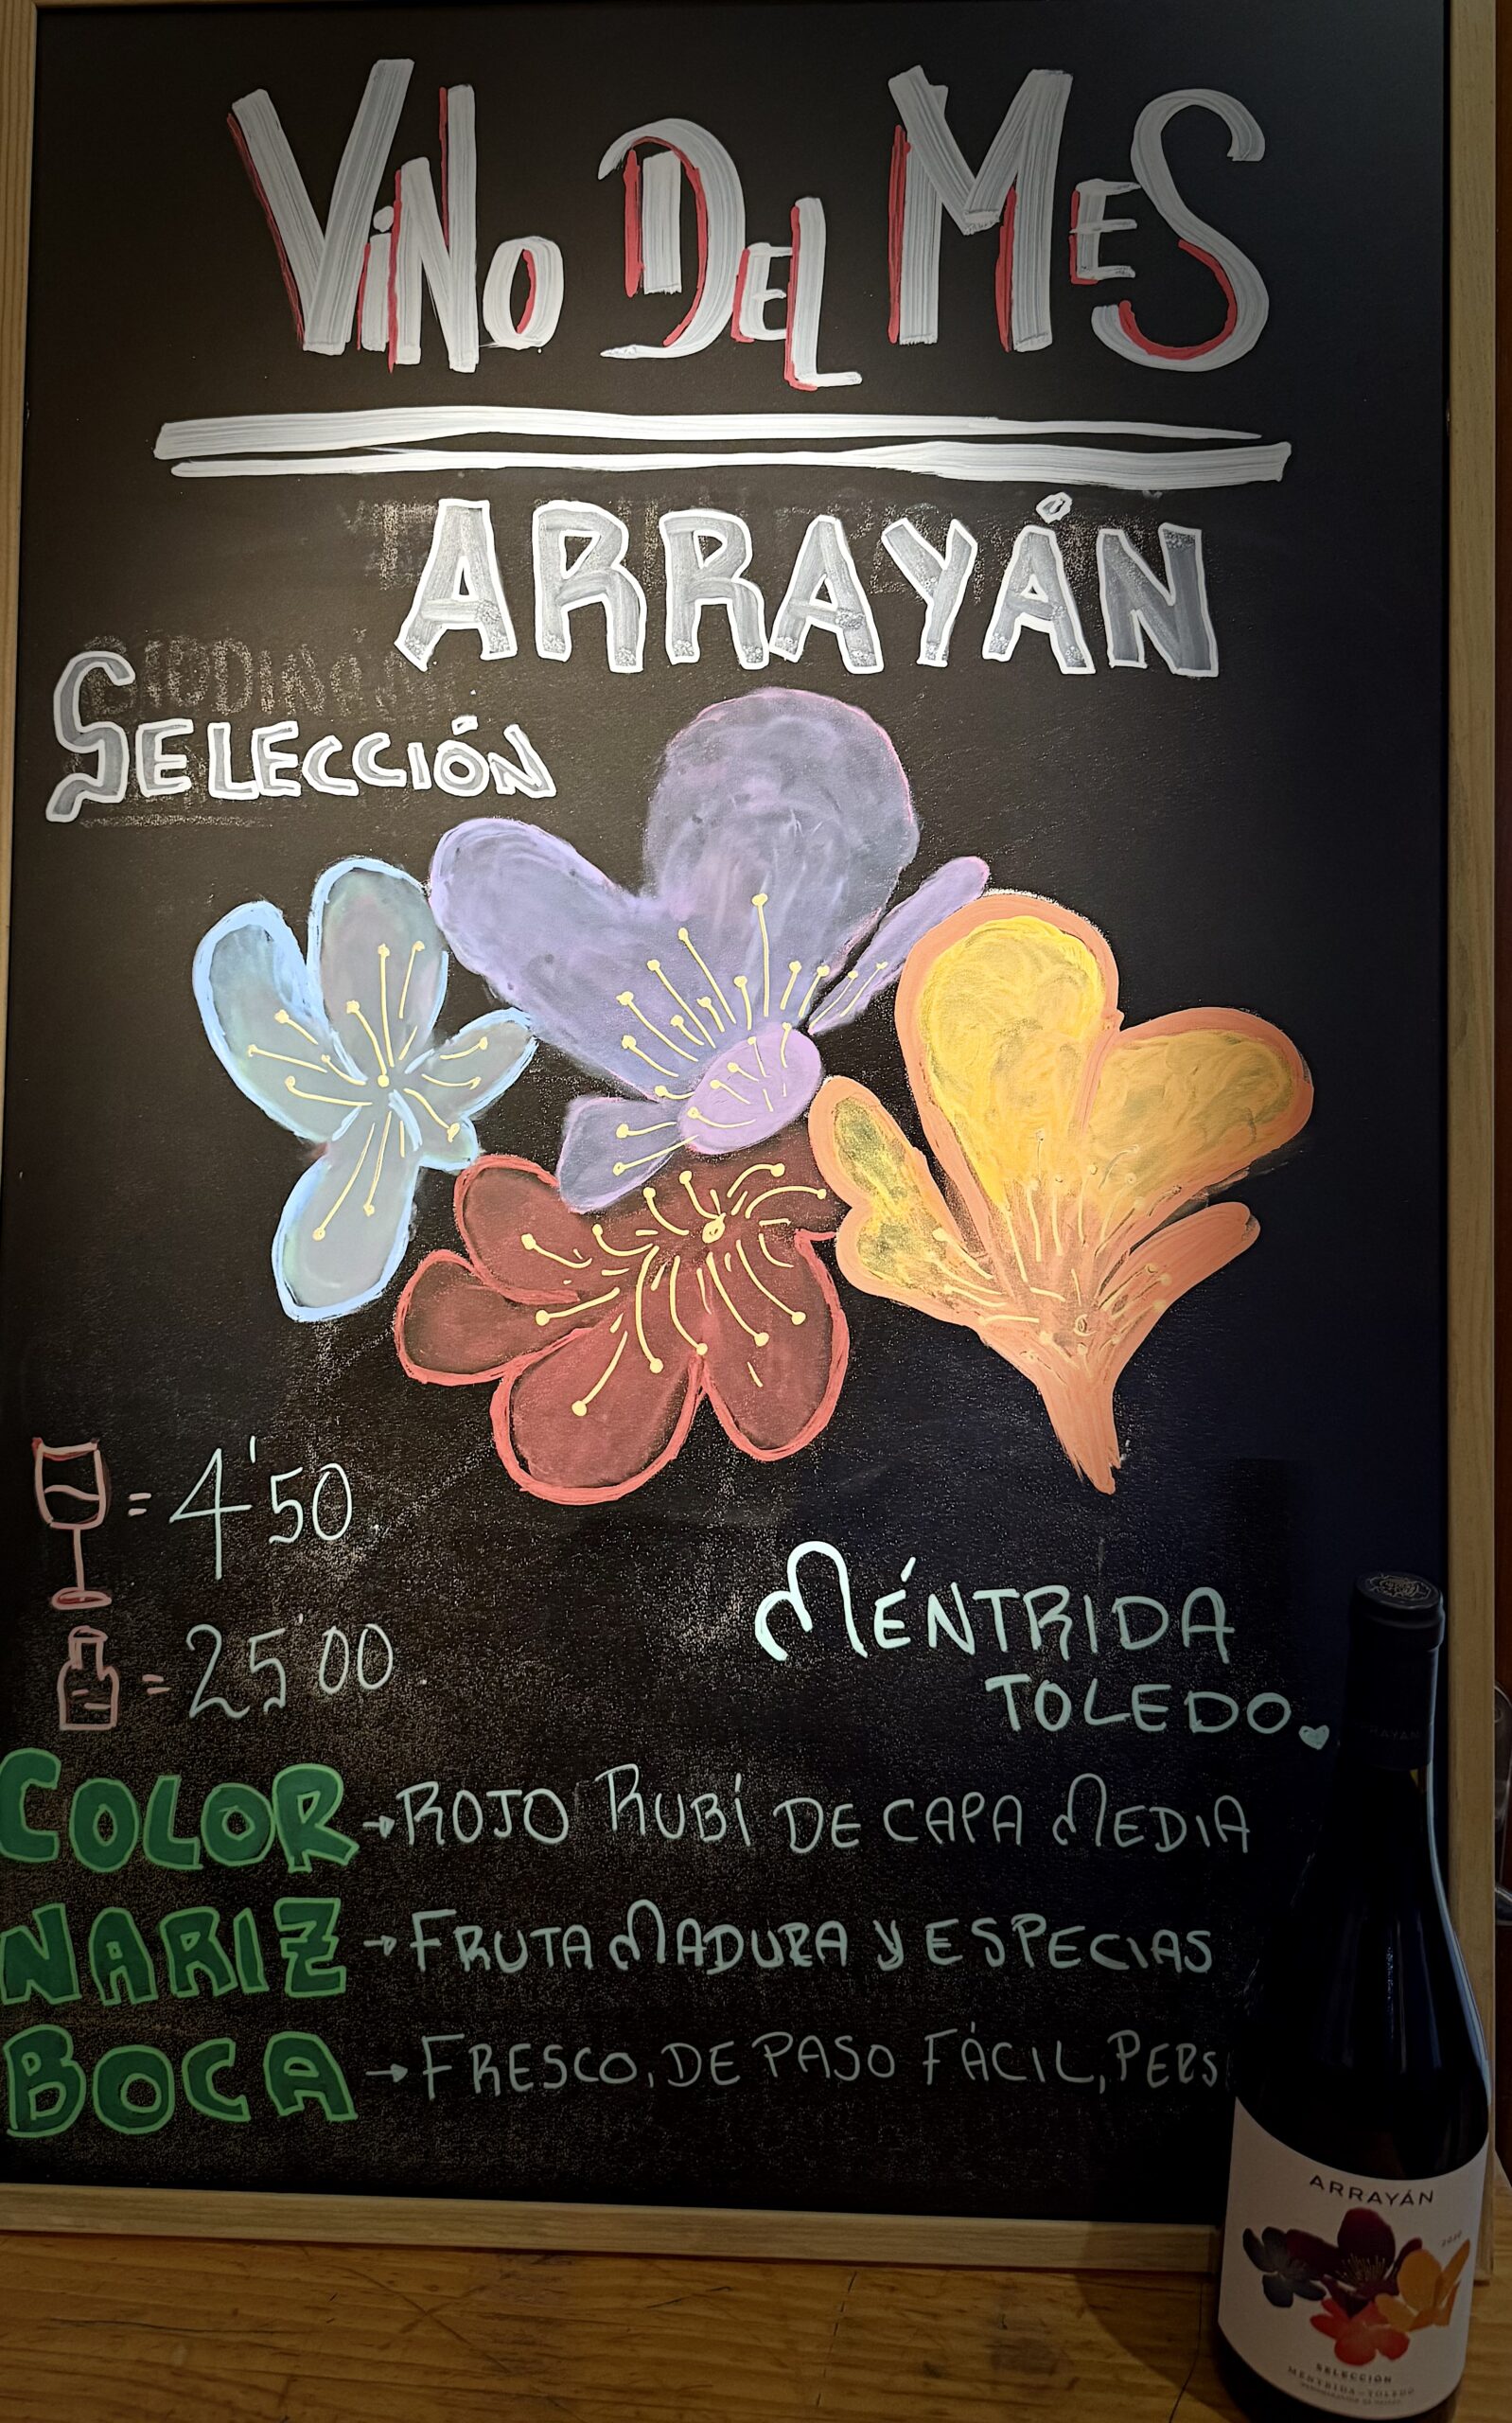 ViNo DEL MES
ARRAYÁN
SELECCIÓN
= 4'50
= 25'00
MÉNTRIDA
TOLEDO
COLOR → ROJO RUBÍ DE CAPA MEDIA
NARIZ → FRUTA MADURA Y ESPECIAS
BOCA → FRESCO, DE PASO FÁCIL, PERS
ARRAYÁN
SELECCIÓN
MÉNTRIDA-TOLEDO